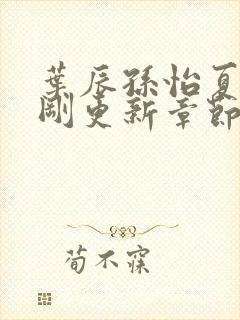 葉辰孫怡夏
剛更新章節
荀不寐